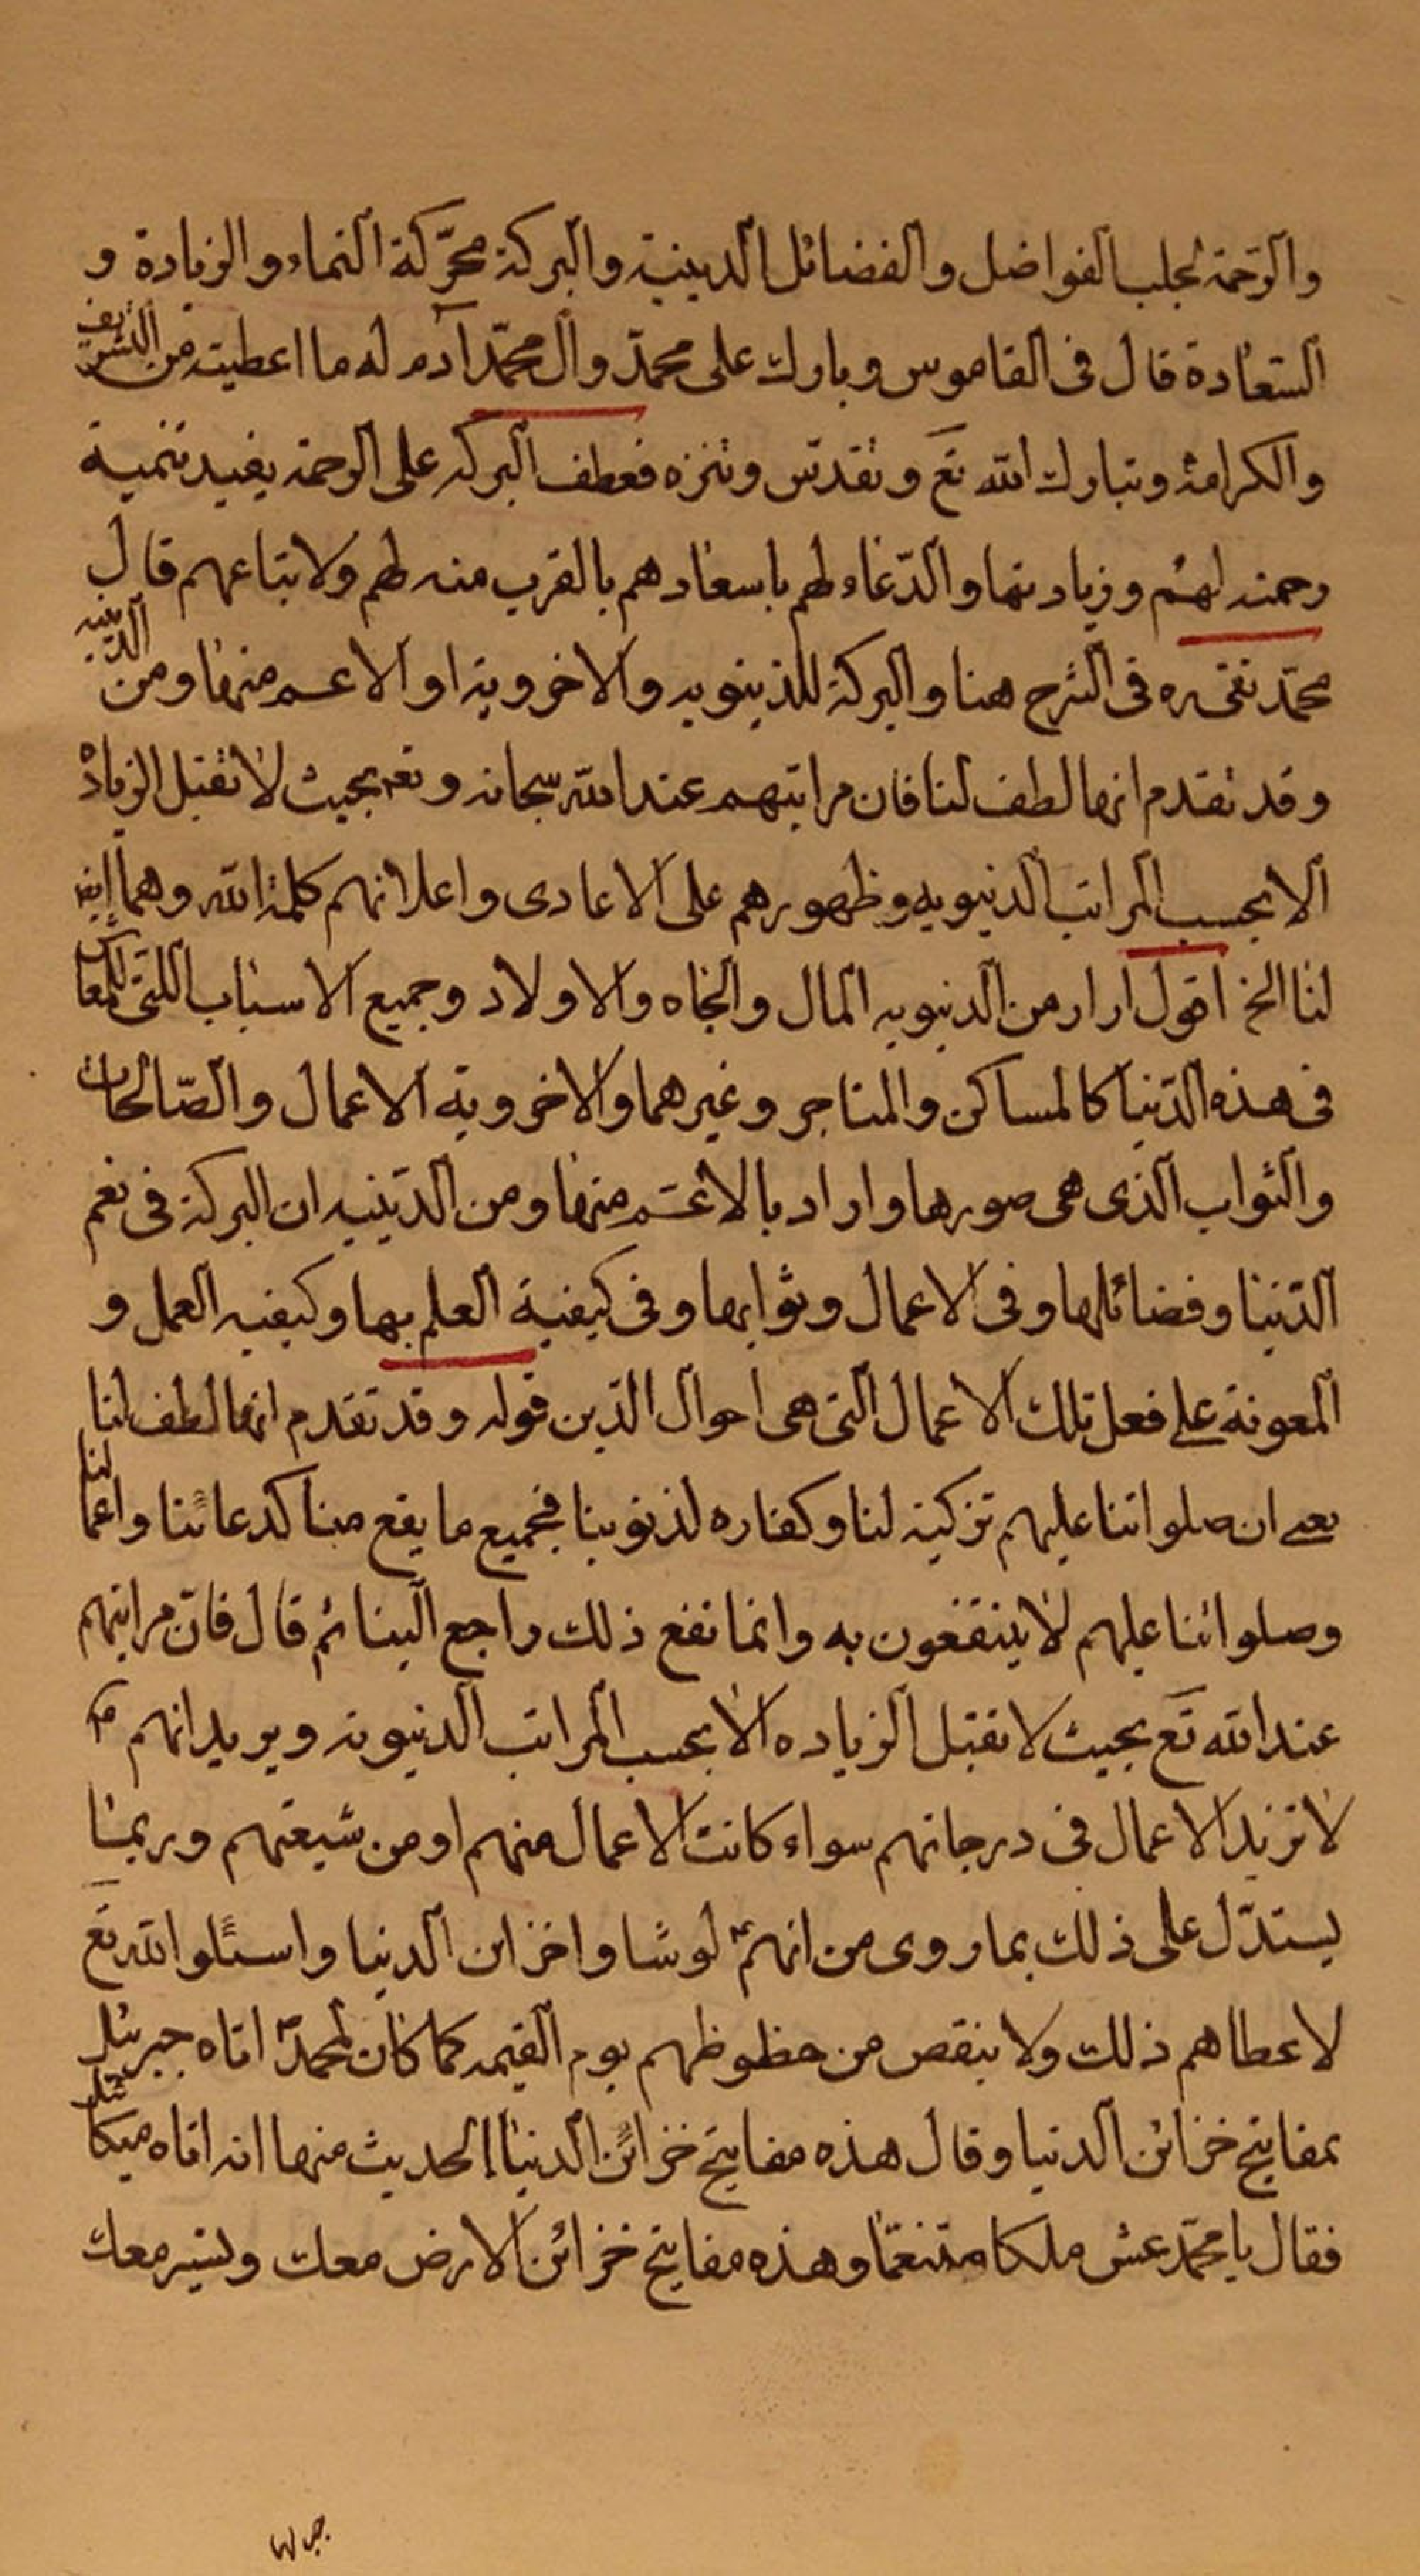 والرحمة لجلب الفواضل والفضائل الدينية والبركة محرّكة النماء والزيادة و
السعادة قال في القاموس وبارك على محمّد وآل محمّد آدم له ما اعطيته من التشريف
والكرامة وتبارك الله تع وتقدّس وتنزه فعطف البركه على الرحمة يفيد تنمية
رحمته لهم وزيادتها والدّعاء لهم باسعادهم بالقرب منه لهم ولاتباعهم قال
محمّد تقى ره فى الشرح هنا والبركة للدنيويه والاخروية او الاعم منها ومن الدينيه
وقد تقدم انها لطف لنا فان مراتبهم عند الله سبحانه وتعم بحيث لا تقبل الزيادة
الا بحسب المراتب الدنيويه وظهورهم على الاعادى واعلانهم كلمة الله وهما ايضا
لنا الخ اقول اراد من الدنيويه المال والجاه والاولاد وجميع الاسباب اللتى للمعاش
فى هذه الدّنيا كالمساكن والمتاجر وغيرهما والاخروية الاعمال والصّالحات
والثواب الذى هى صورها واراد بالاعمّ منها ومن الدّينيه ان البركة فى نعم
الدّنيا وفضائلها وفى الاعمال وثوابها وفى كيفية العلم بها وكيفيه العمل و
المعونة على فعل تلك الاعمال التى هى احوال الدّين قوله وقد تقدم انها لطف لنا
يعنى ان صلواتنا عليهم تزكية لنا وكفاره لذنوبنا فجميع ما يقع منا كدعائنا واعمالنا
وصلواتنا عليهم لا ينتفعون به وانما نفع ذلك راجع الينا ثم قال فانّ مراتبهم
عند الله تع بحيث لا تقبل الزياده الا بحسب المراتب الدنيوية ويريد انهم
لا تزيد الاعمال فى درجاتهم سواء كانت الاعمال منهم او من شيعتهم وربما
يستدّل على ذلك بما روى من انهم لو شاوا خزائن الدنيا واسئلوا الله تع
لاعطاهم ذلك ولا ينقص من حظوظهم يوم القيمه كما كان لمحمّد اتاه جبرئيل
بمفاتيح خزائن الدنيا وقال هذه مفاتيح خزائن الدنيا الحديث منها انه اتاه ميكائيل
فقال يا محمّد عش ملكا متنعّما وهذه مفاتيح خزائن الارض معك وتسير معك